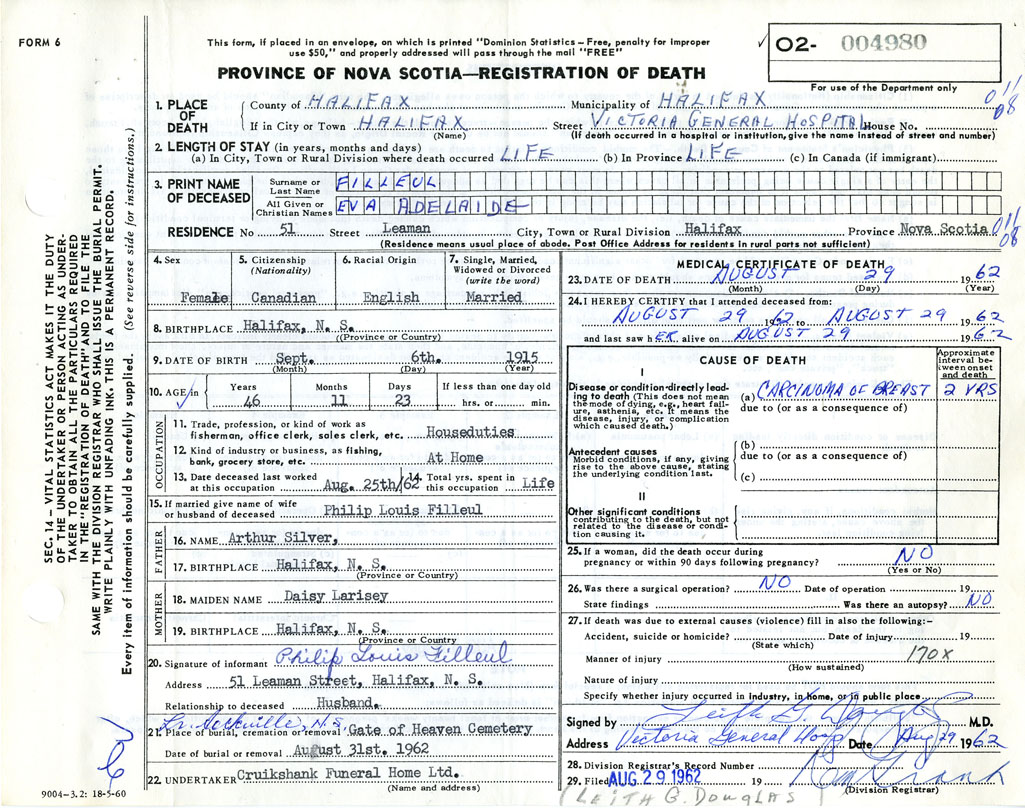 FORM 6
This form, if placed in an envelope, on which is printed "Dominion Statistics – Free, penalty for improper
use $50," and properly addressed will pass through the mail "FREE"
PROVINCE OF NOVA SCOTIA—REGISTRATION OF DEATH
✓ 02- 004980
For use of the Department only
011
08
SEC. 14 – VITAL STATISTICS ACT MAKES IT THE DUTY
OF THE UNDERTAKER OR PERSON ACTING AS UNDER-
TAKER TO OBTAIN ALL THE PARTICULARS REQUIRED
IN THE "REGISTRATION OF DEATH" AND TO FILE THE
SAME WITH THE DIVISION REGISTRAR WHO SHALL ISSUE THE BURIAL PERMIT.
WRITE PLAINLY WITH UNFADING INK. THIS IS A PERMANENT RECORD.
Every item of information should be carefully supplied. (See reverse side for instructions.)
1. PLACE OF DEATH
County of HALIFAX Municipality of HALIFAX
If in City or Town HALIFAX Street VICTORIA GENERAL HOSPITAL House No.
(Name) (If death occurred in a hospital or institution, give the name instead of street and number)
2. LENGTH OF STAY (in years, months and days)
(a) In City, Town or Rural Division where death occurred LIFE (b) In Province LIFE (c) In Canada (if immigrant)
3. PRINT NAME OF DECEASED
Surname or Last Name FILLEUL
All Given or Christian Names EVA ADELAIDE
RESIDENCE No 51 Street Leaman City, Town or Rural Division Halifax Province Nova Scotia 011
08
(Residence means usual place of abode. Post Office Address for residents in rural parts not sufficient)
4. Sex Female
5. Citizenship (Nationality) Canadian
6. Racial Origin English
7. Single, Married, Widowed or Divorced (write the word) Married
8. BIRTHPLACE Halifax, N. S.
((Province or Country)
9. DATE OF BIRTH Sept. 6th. 1915
(Month) (Day) (Year)
10. AGE in Years Months Days If less than one day old
46 11 23 hrs. or min.
OCCUPATION
11. Trade, profession, or kind of work as
fisherman, office clerk, sales clerk, etc. Houseduties
12. Kind of industry or business, as fishing,
bank, grocery store, etc. At Home
13. Date deceased last worked at this occupation Aug. 25th/62
14. Total yrs. spent in this occupation Life
15. If married give name of wife
or husband of deceased Philip Louis Filleul
FATHER
16. NAME Arthur Silver,
17. BIRTHPLACE Halifax, N. S.
(Province or Country)
MOTHER
18. MAIDEN NAME Daisy Larisey
19. BIRTHPLACE Halifax, N. S.
(Province or Country
20. Signature of informant Philip Louis Filleul
Address 51 Leaman Street, Halifax, N. S.
Relationship to deceased Husband.
Sackville, N.S.
21. Place of burial, cremation or removal Gate of Heaven Cemetery
Date of burial or removal August 31st. 1962
22. UNDERTAKER Cruikshank Funeral Home Ltd.
(Name and address)
9004-3.2: 18-5-60
MEDICAL CERTIFICATE OF DEATH
23. DATE OF DEATH AUGUST 29 1962
(Month) (Day) (Year)
24. I HEREBY CERTIFY that I attended deceased from:
AUGUST 29 1962 to AUGUST 29 1962
and last saw hER alive on AUGUST 29 1962
CAUSE OF DEATH
Approximate interval between onset and death
I
Disease or condition directly lead-
ing to death (This does not mean
the mode of dying, e.g., heart fail-
ure, asthenia, etc. It means the
disease, injury, or complication
which caused death.)
(a) CARCINOMA OF BREAST 2 YRS
due to (or as a consequence of)
Antecedent causes
Morbid conditions, if any, giving
rise to the above cause, stating
the underlying condition last.
(b)
due to (or as a consequence of)
(c)
II
Other significant conditions
contributing to the death, but not
related to the disease or condi-
tion causing it.
25. If a woman, did the death occur during
pregnancy or within 90 days following pregnancy? NO
(Yes or No)
26. Was there a surgical operation? NO Date of operation 19
State findings Was there an autopsy? NO
27. If death was due to external causes (violence) fill in also the following:–
Accident, suicide or homicide? Date of injury 19
(State which)
Manner of injury 170X
(How sustained)
Nature of injury
Specify whether injury occurred in industry, in home, or in public place
Signed by Leith G. Douglas M.D.
Address Victoria General Hosp Date Aug 29 1962
28. Division Registrar's Record Number
29. Filed AUG 29 1962 19
(Division Registrar)
(LEITH G. DOUGLAS